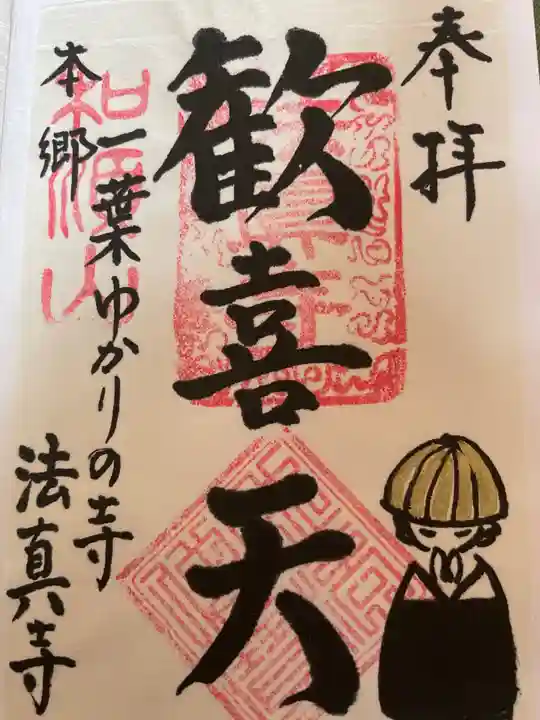 奉拝
歓喜天
本郷
一葉ゆかりの寺
法真寺